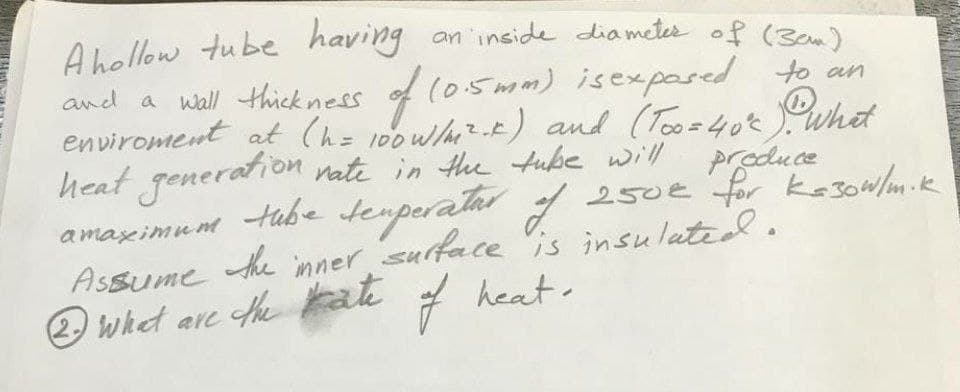 A hollow tube having an inside diameter of (3cm)
and a wall thickness of (0.5 mm) is exposed to an
enviroment at (h = 100 w/m².k) and (T∞=40°c). ①. what
heat generation rate in the tube will produce
a maximum tube temperatur of 250°c for k=30w/m.k
Assume the inner surface is insulated.
②. what are the rate of heat.